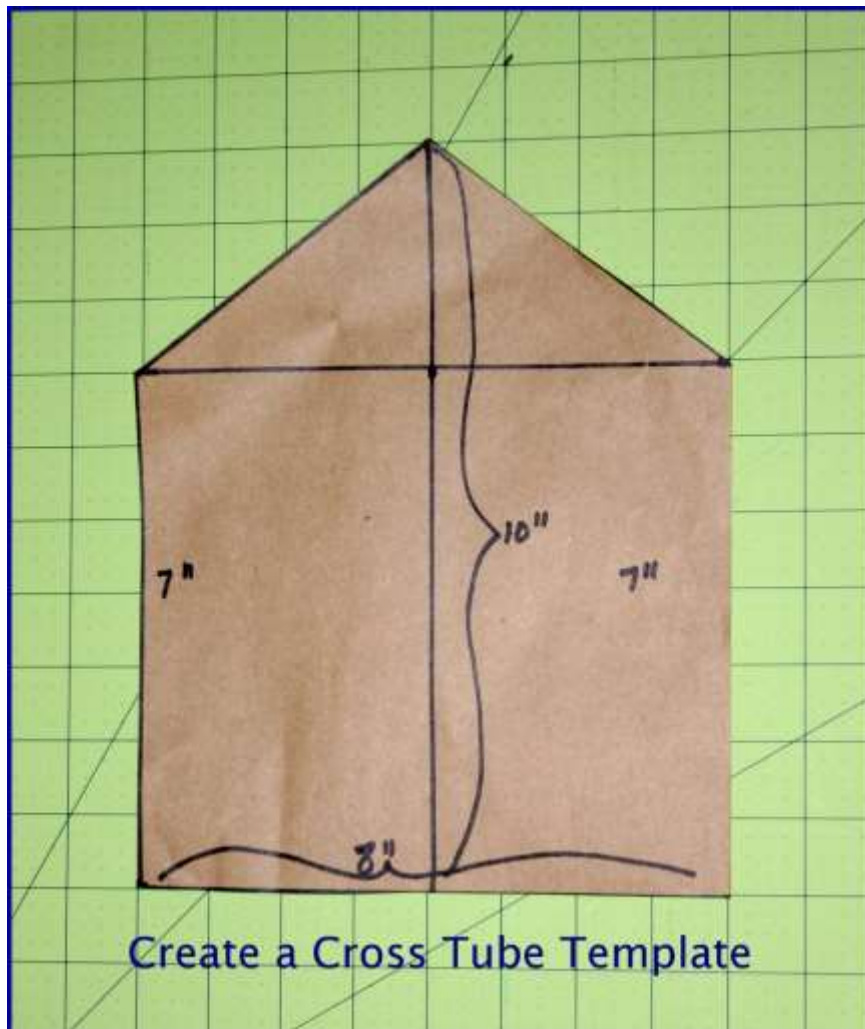 10"
7"
7"
8"
Create a Cross Tube Template